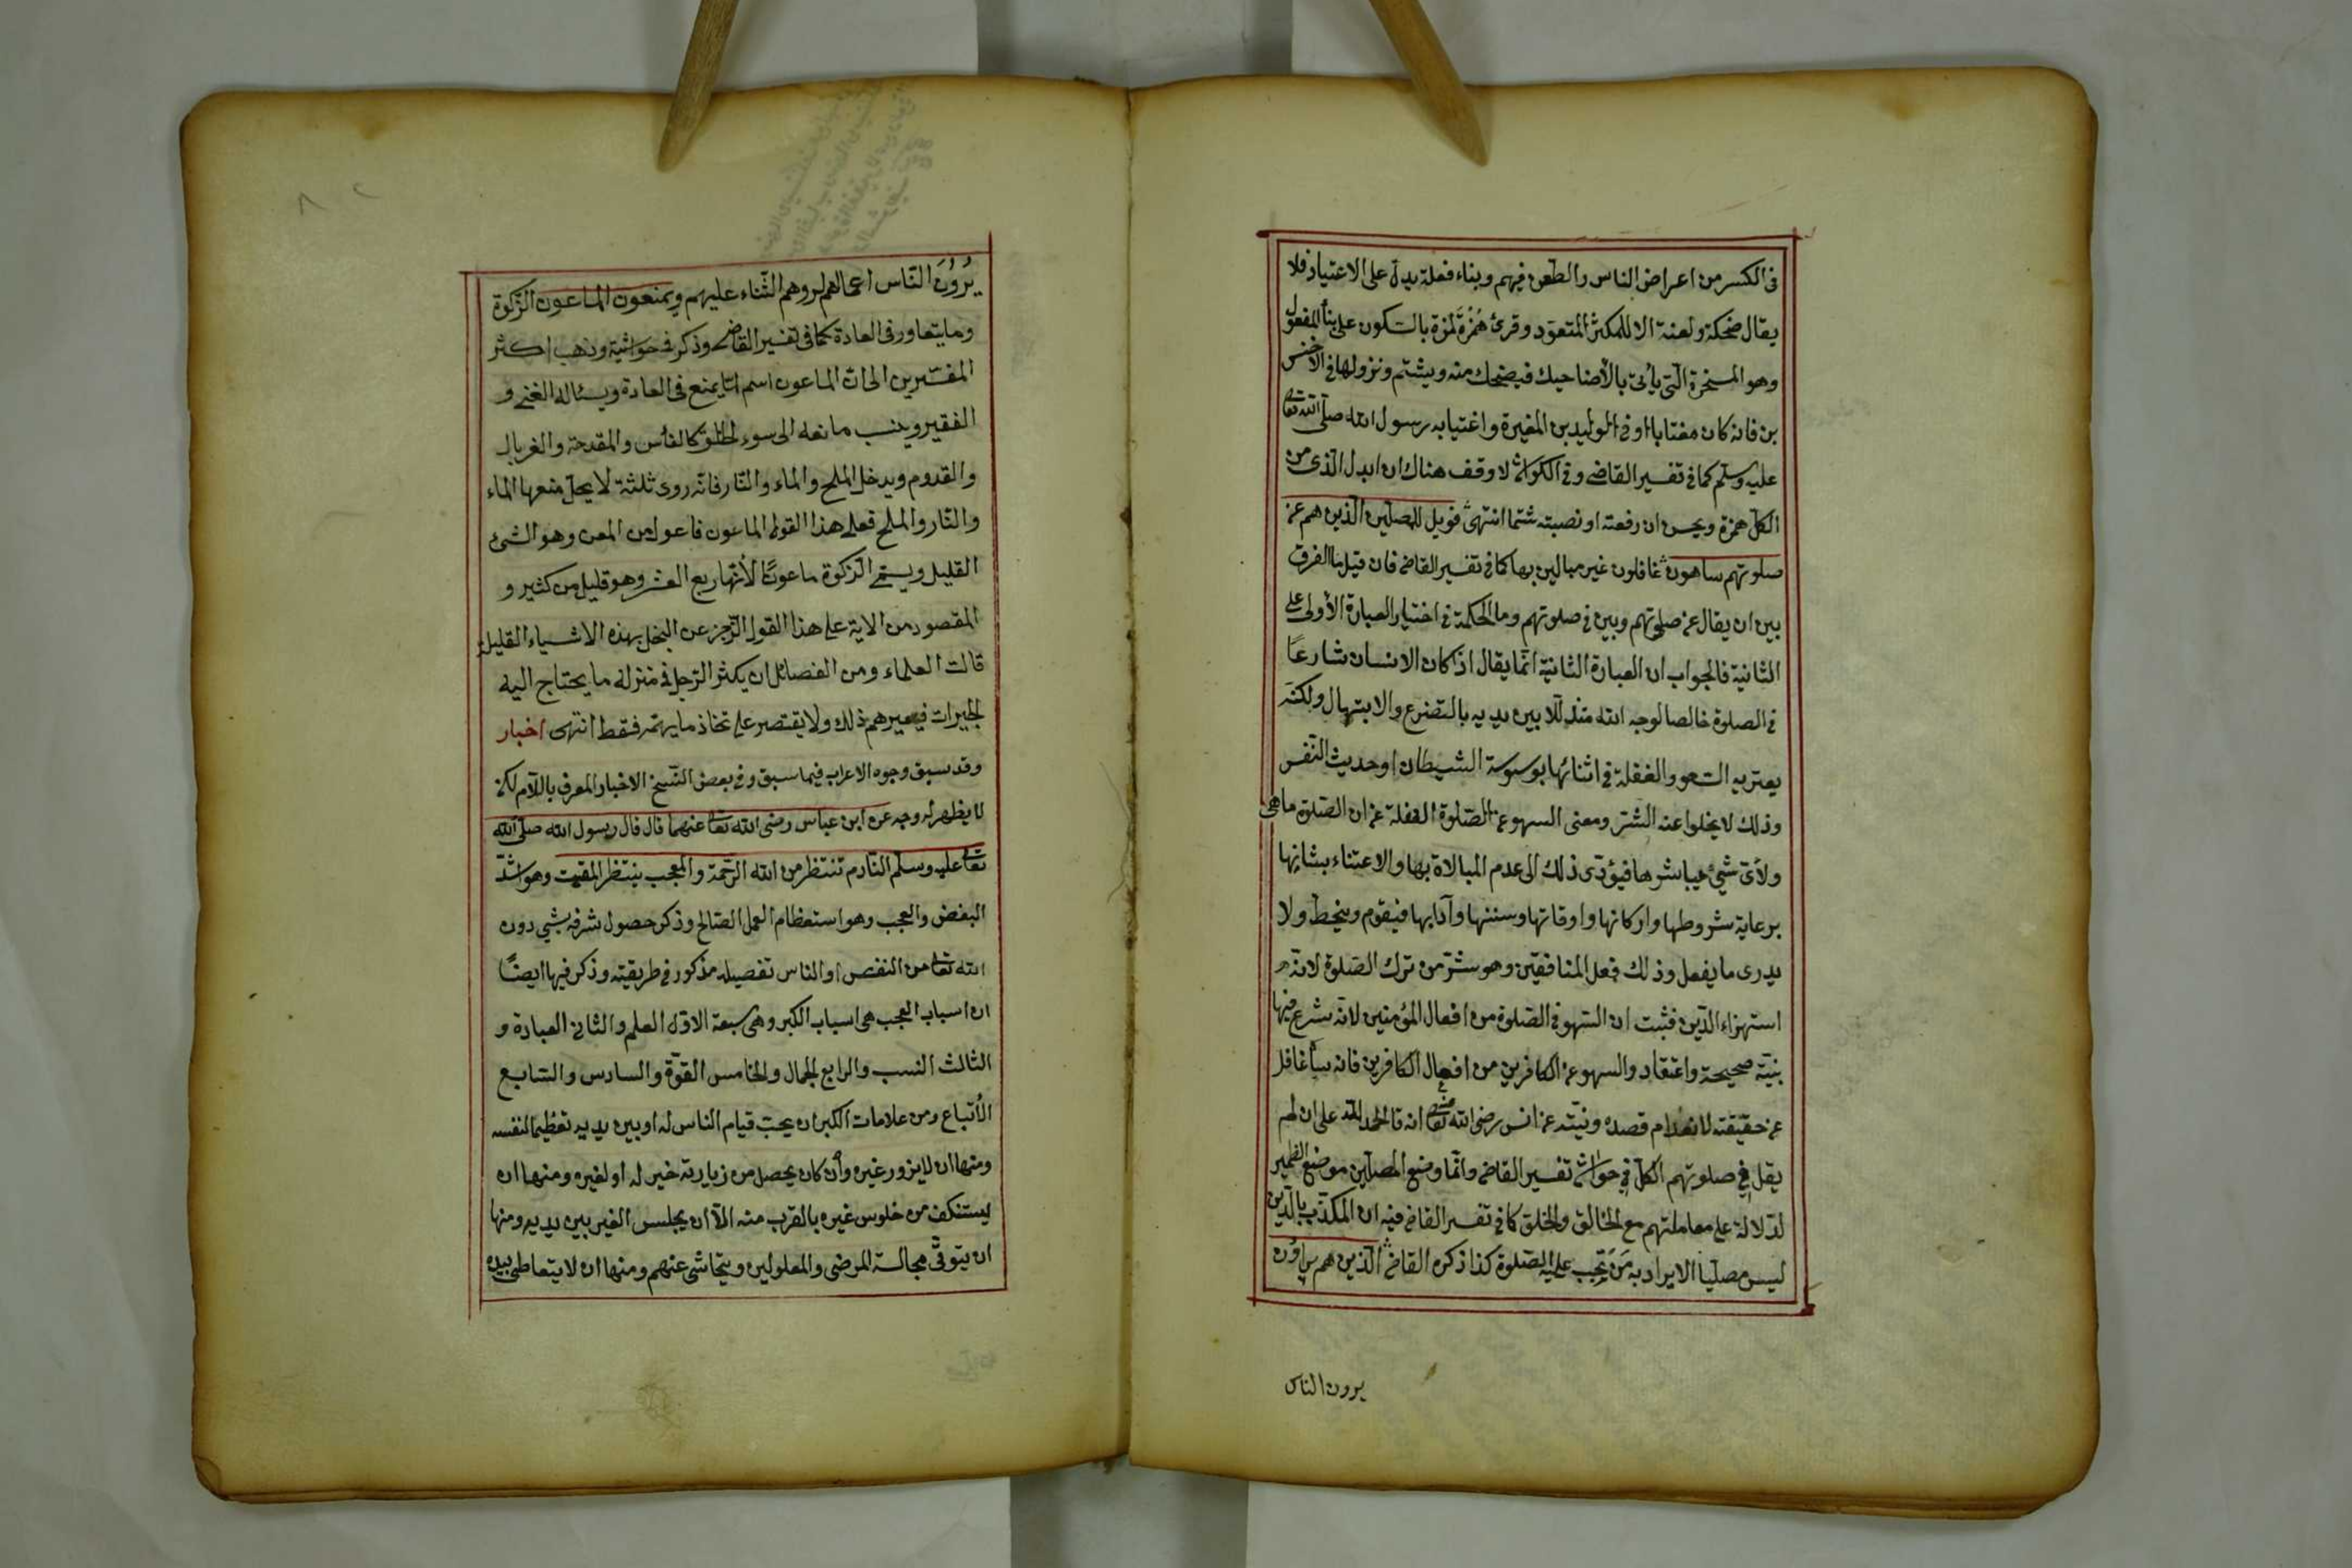 فى الكسر من اعراض الناس والطعن فيهم وبناء فعلة يدل على الاعتياد فلا
يقال ضحكة ولعنة الا للمكثر المتعوّد وقرئ هُمْزَة لمزة بالسّكون على بناء المفعول
وهو المسخرة الّتى يأتى بالأضاحيك فيضحك منه ويشتم ونزولها فى الاخنس
بن فانه كان مغتابا او فى الوليد بن المغيرة واغتيابه رسول الله صلّى الله تعالى
عليه وسلم كما فى تفسير القاضى وفى الكواشى لا وقف هناك ان ابدل الّذى من
الكلّ همزة ويحسن ان رفعته او نصبته شتما انتهى فويل للمصلّين الّذين هم عن
صلوتهم ساهون غافلون غير مبالين بها كما فى تفسير القاضى فان قيل ما الفرق
بين ان يقال عن صلوتهم وبين فى صلوتهم وما الحكمة فى اختيار العبارة الأولى على
الثانية فالجواب ان العبارة الثانية انّما يقال اذا كان الانسان شارعًا
فى الصلوة خالصا لوجه الله متذللا بين يديه بالتضرع والابتهال ولكنّه
يعتريه السّهو والغفلة فى اثنائها بوسوسة الشيطان او حديث النّفس
وذلك لا يخلوا عنه البشر ومعنى السهو عن الصّلوة الغفلة عن ان الصّلوة ما هى
ولأىّ شئ يباشرها فيؤدّى ذلك الى عدم المبالاة بها والاعتناء بشانها
برعاية شروطها واركانها واوقاتها وسننها وآدابها فيقوم وينحطّ ولا
يدرى ما يفعل وذلك فعل المنافقين وهو شرّ من ترك الصّلوة لانّه
استهزاء الدّين فثبت ان السّهو فى الصّلوة من افعال المؤمنين لانّه شرع فيها
بنيّة صحيحة واعتقاد والسهو عن الكافرين من افعال الكافرين فانه غافل
عن حقيقته لانعدام قصده ونيّته عن انس رضى الله تعالى عنه انه قال الحمد لله على ان لم
يقل فى صلوتهم الكلّ فى حواشى تفسير القاضى وانّما وضع المصلّين موضع الضمير
لدّلالة على معاملتهم مع الخالق والخلق كما فى تفسير القاضى فيه ان المكذّب بالدّين
ليس مصلّيا الا يراد به مَنْ تجب عليه الصّلوة كذا ذكره القاضى الّذين هم يراؤن
يرون الناس
يُرُونَ النّاس اعمالهم ليروهم الثّناء عليهم ويمنعون الماعون الزّكوة
وما يتعاور فى العادة كما فى تفسير القاضى وذكر فى حواشيه وذهب اكثر
المفسّرين الى انّ الماعون اسم لما يمنع فى العادة ويسئاله الغنىّ و
الفقير وينسب مانعه الى سوء الخلق كالفأس والمقدحة والغربال
والقدوم ويدخل الملح والماء والنّار فانّه روى ثلثة لا يحلّ منعها الماء
والنّار والملح فعلى هذا القول الماعون فاعول من المعن وهو الشئ
القليل ويسمّى الزكوة ماعونًا لأنّها ربع العشر وهو قليل من كثير و
المقصود من الاية على هذا القول الزّجر عن البخل بهذه الاشياء القليلة
قالت العلماء ومن الفضائل ان يكثر الرّجل فى منزله ما يحتاج اليه
الجيران فيعيرهم ذلك ولا يقتصر على اتخاذ ما يهمّه فقط انتهى اخبار
وقد سبق وجوه الاعراب فيما سبق وفى بعض النّسخ الاخبار المعرف باللام لكن
لا يظهر له وجه عن ابن عباس رضى الله تعالى عنهما قال قال رسول الله صلّى الله
تعالى عليه وسلّم النّادم تنتظر من الله الرّحمة والمعجب ينتظر المقت وهو اشدّ
البغض والعجب وهو استعظام العمل الصّالح وذكر حصول شرفه بشئ دون
الله تعالى من النفس او الناس تفصيله مذكور فى طريقته وذكر فيها ايضًا
ان اسباب العجب هى اسباب الكبر وهى سبعة الاوّل العلم والثانى العبادة و
الثالث النسب والرابع الجمال والخامس القوّة والسادس والسّابع
الأتباع ومن علامات الكبر ان يحبّ قيام الناس له او بين يديه تعظيما لنفسه
ومنها ان لا يزور غيره وأن كان يحصل من زيارته خير له او لغيره ومنها ان
ليستنكف من جلوس غيره بالقرب منه الّا ان يجلس الغير بين يديه ومنها
ان يتوقّى مجالسة المرضى والمعلولين ويتحاشى عنهم ومنها ان لا يتعاطى بيده